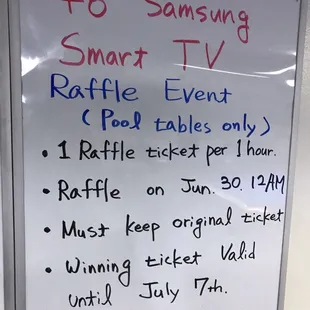 Samsung
Smart TV
Raffle Event
(Pool tables only)
• 1 Raffle ticket per 1 hour.
• Raffle on Jun. 30. 12AM
• Must keep original ticket
• Winning ticket Valid
until July 7th.